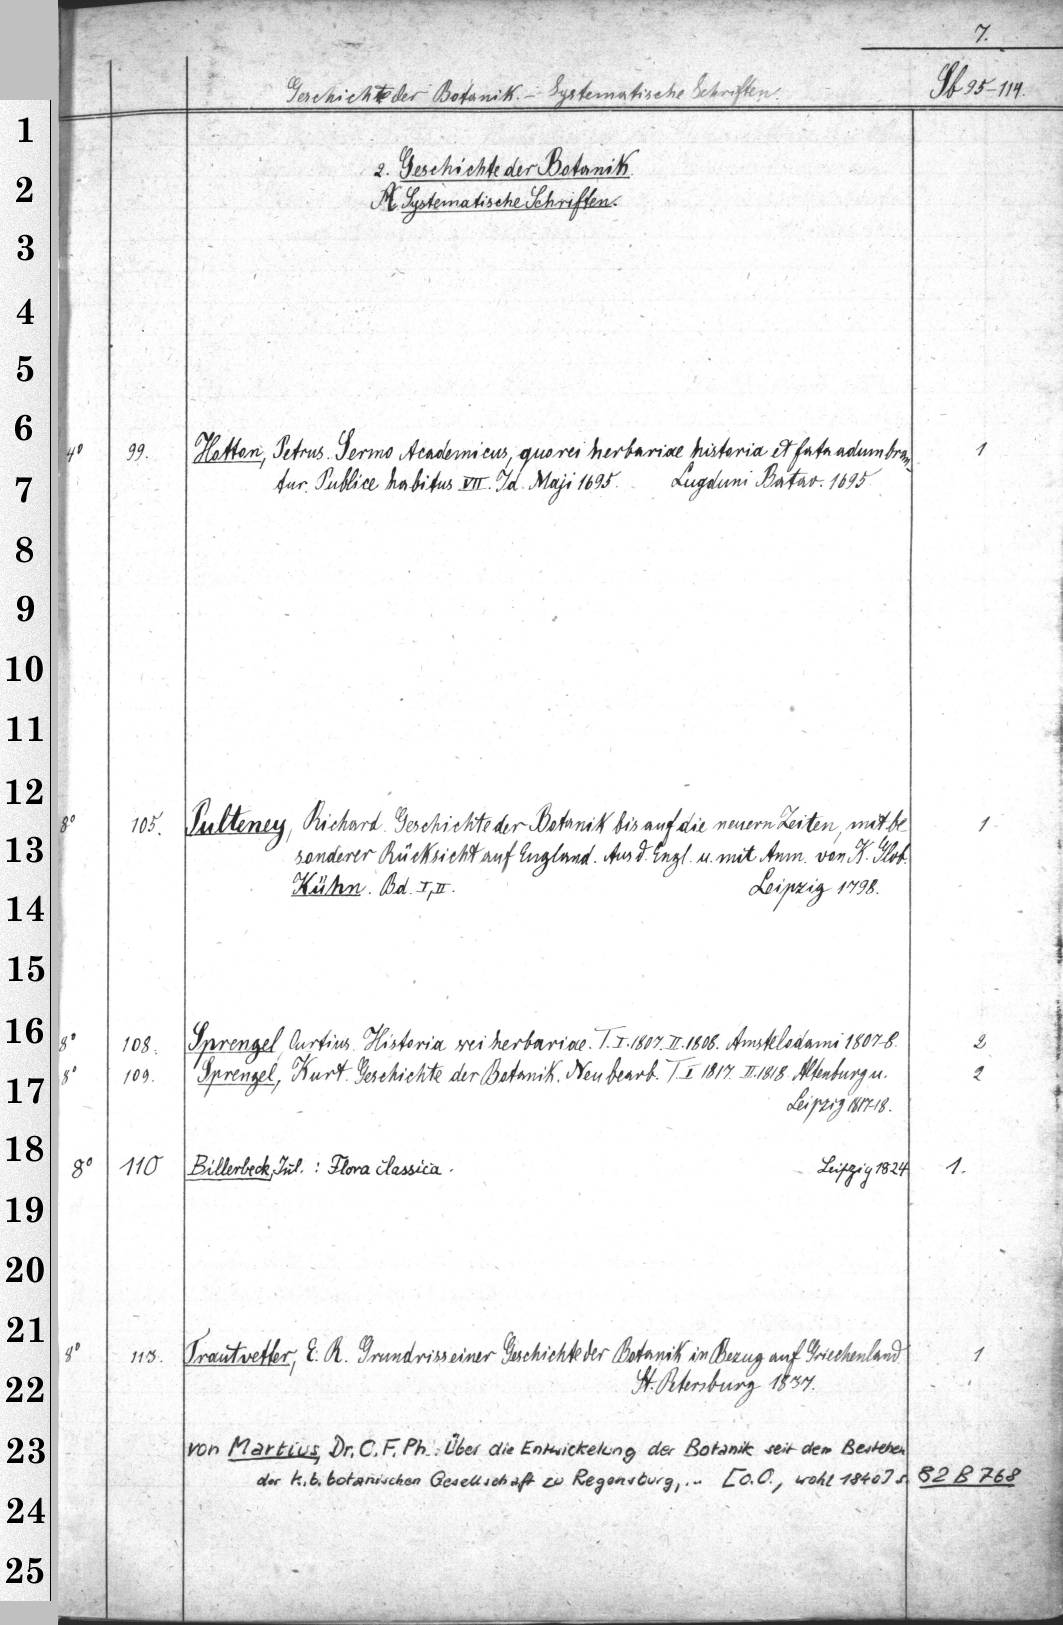 7.
Geschichte der Botanik. – Systematische Schriften.
Sb 95–114.
1
2. Geschichte der Botanik.
2
A. Systematische Schriften.
3
4
5
6
4° 99. Hotton, Petrus. Sermo Academicus, quo rei herbariae historia et fata adumbran- 1
7
tur. Publice habitus VII. Id. Maji 1695. Lugduni Batav. 1695
8
9
10
11
12
8° 105. Pulteney, Richard. Geschichte der Botanik bis auf die neuern Zeiten, mit be 1
13
sonderer Rücksicht auf England. Aus d. Engl. u. mit Anm. von K. Glob.
Kühn. Bd. I, II. Leipzig 1798.
14
15
16
8° 108. Sprengel, Curtius. Historia rei herbariae. T. I. 1807. II. 1808. Amstelodami 1807-8. 2
8° 109. Sprengel, Kurt. Geschichte der Botanik. Neu bearb. T. I 1817. II. 1818 Altenburg u. 2
17
Leipzig 1817-18.
18
8° 110 Billerbeck, Jul. : Flora classica. Leipzig 1824 1.
19
20
21
8° 113. Trautvetter, E. R. Grundriss einer Geschichte der Botanik in Bezug auf Griechenland 1
22
St. Petersburg 1837.
23
von Martius, Dr. C. F. Ph.: Über die Entwickelung der Botanik seit dem Bestehen
der k. b. botanischen Gesellschaft zu Regensburg, .. [o. O., wohl 1840] s. 82 B 768
24
25